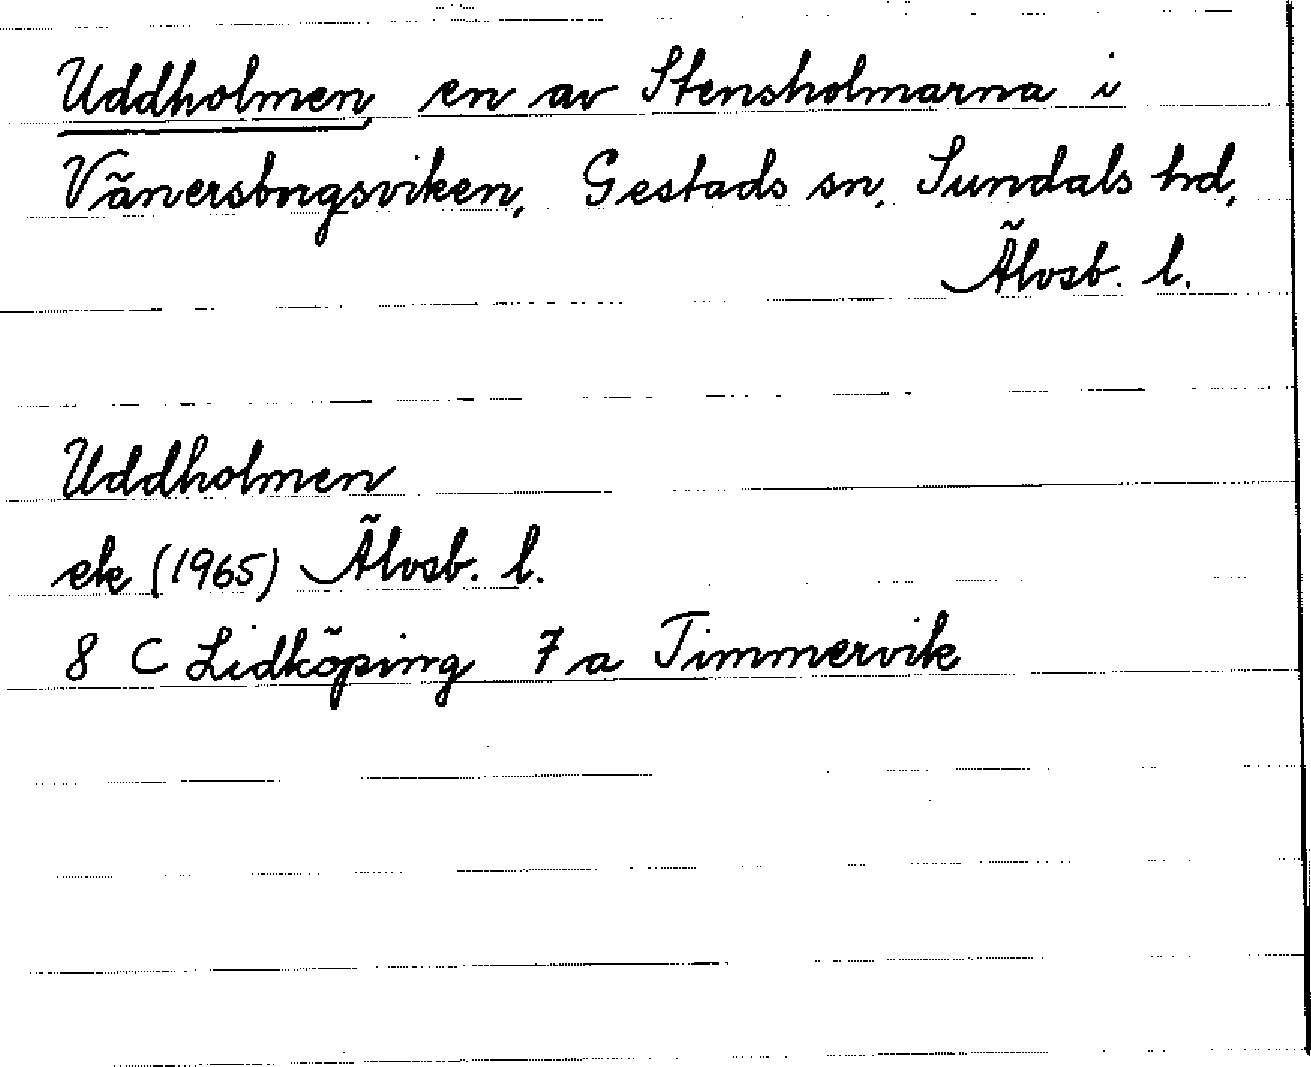 Uddholmen en av Stensholmarna i
Vänersborgsviken, Gestads sn, Sundals hd,
Älvsb. l.
Uddholmen
ek (1965) Älvsb. l.
8 C Lidköping 7 a Timmervik